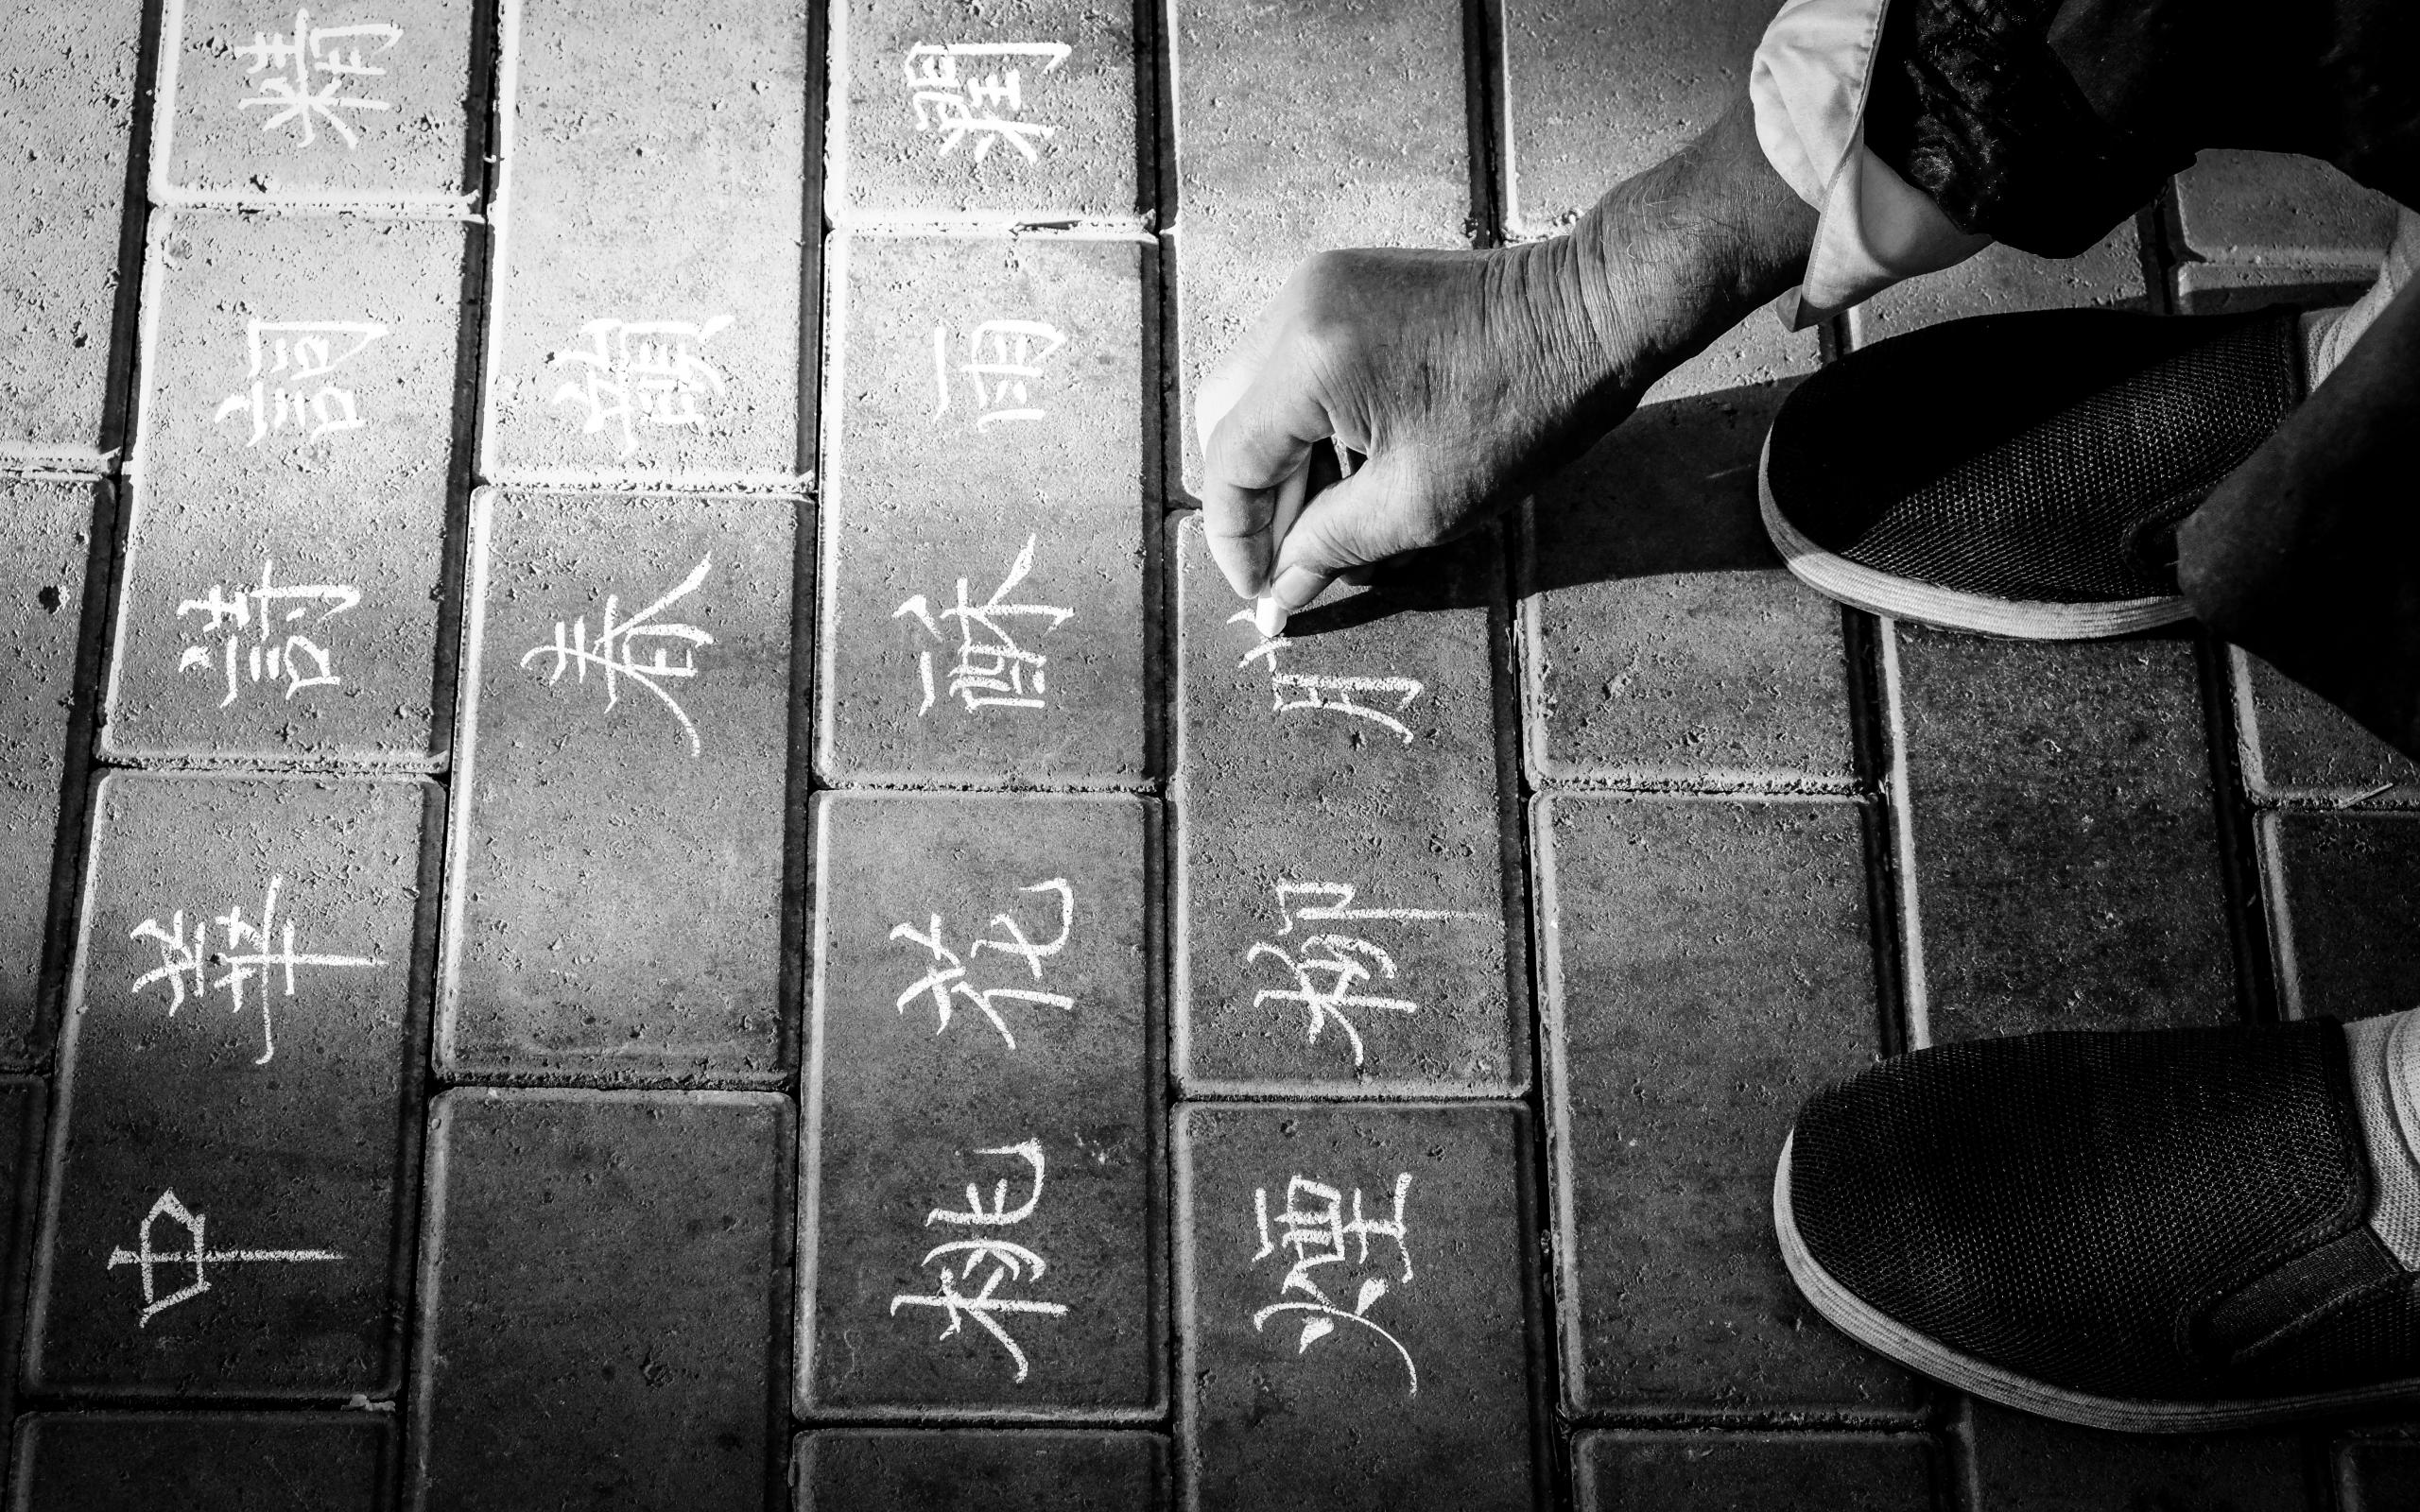 中華詩詞精
春韻
桃花酥雨
煙柳